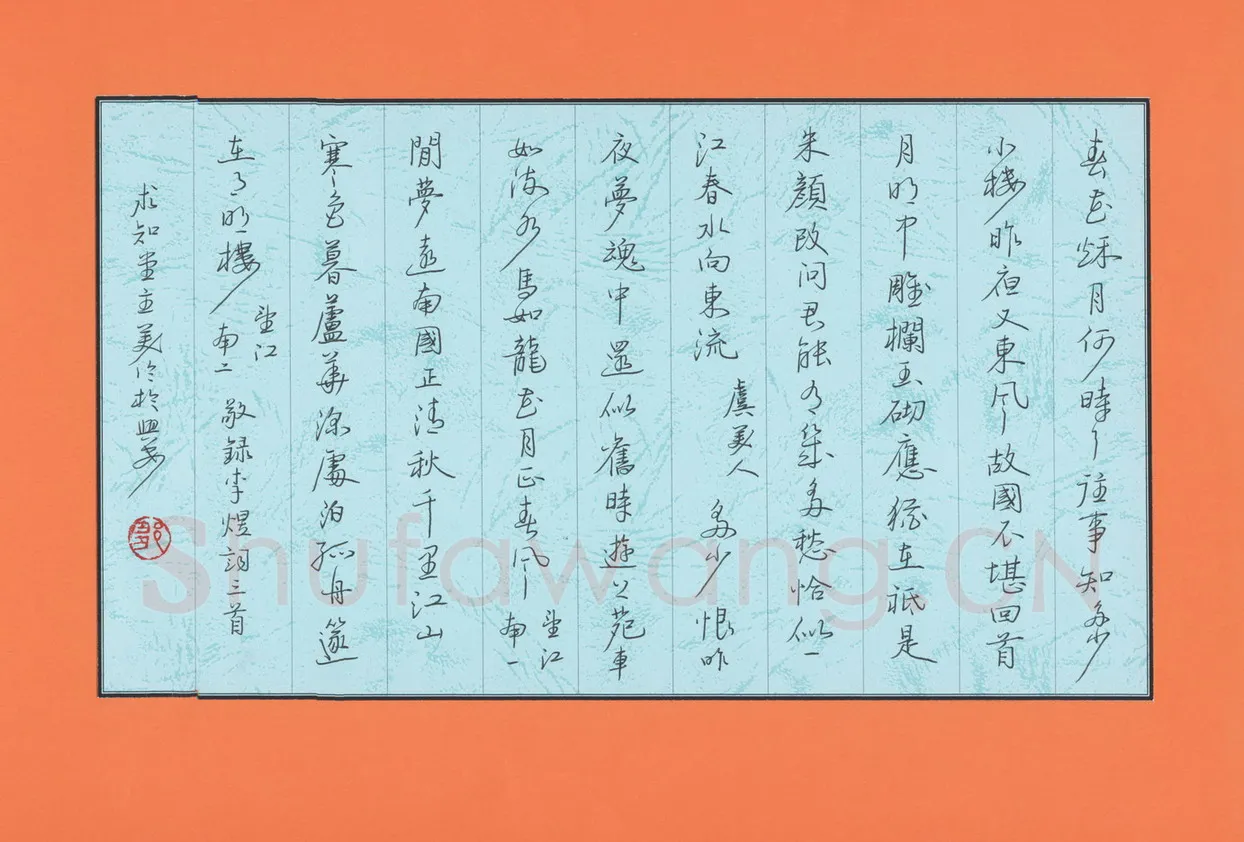 春花秋月何時了往事知多少
小樓昨夜又東風故國不堪回首
月明中雕欄玉砌應猶在祗是
朱顏改問君能有幾多愁恰似一
江春水向東流 虞美人 多少恨昨
夜夢魂中還似舊時遊上苑車
如流水馬如龍花月正春風 望江南一
閒夢遠南國正清秋千里江山
寒色暮蘆花深處泊孤舟邃
在月明樓 望江南二 敬録李煜詞三首
求知堂主美伶於
鄒
Shufawang.CN